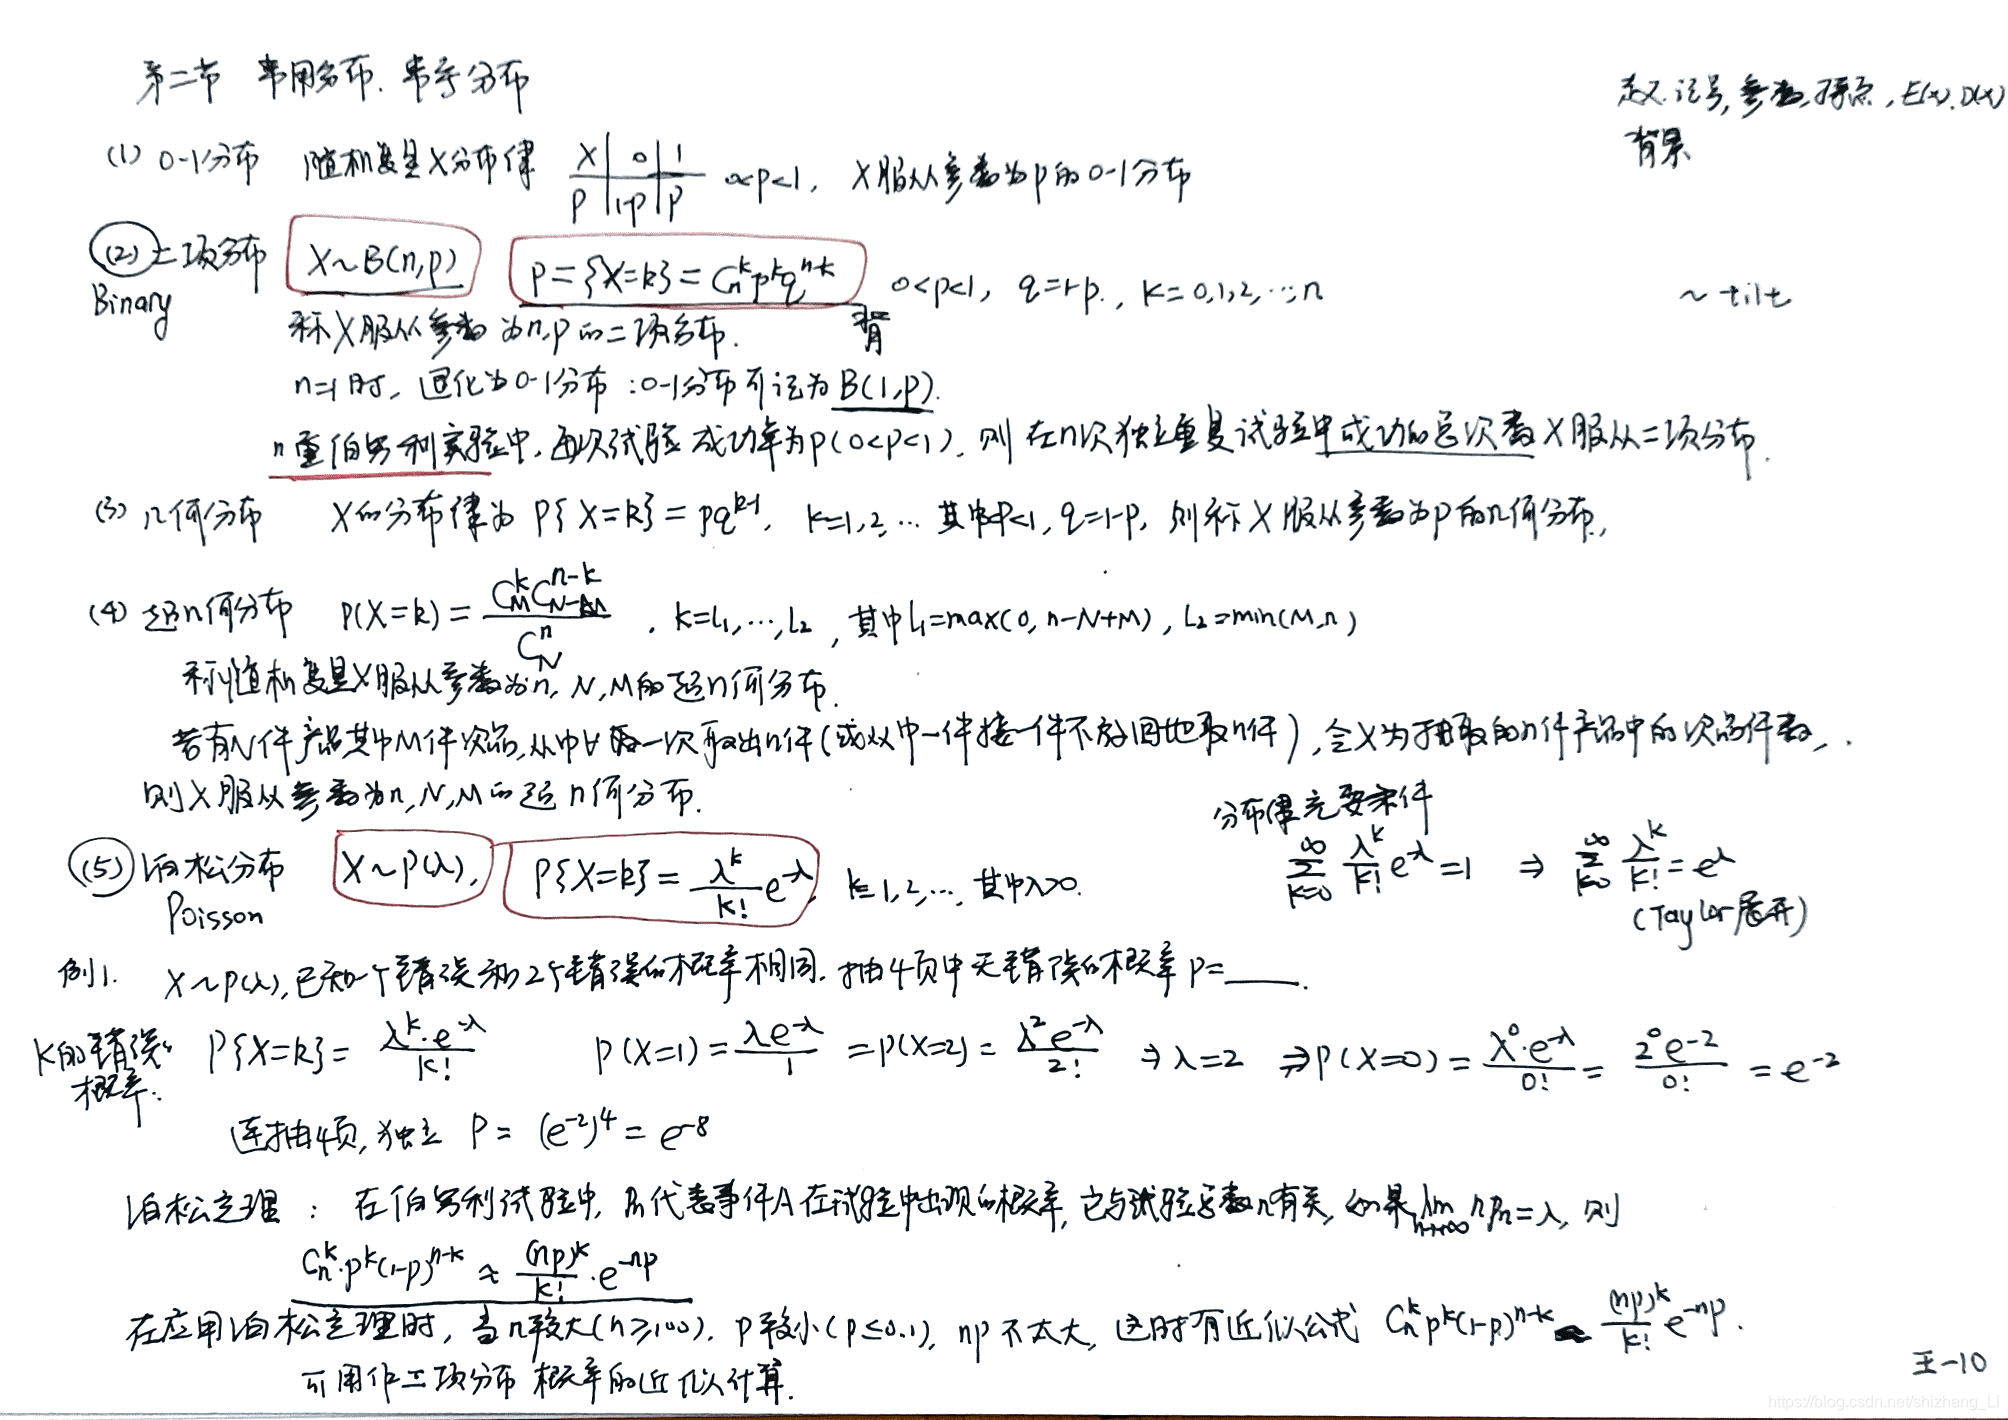 第二节 常用分布、常号分布
定义、记号, 参数, 择点, E(x), D(x)
背景
(1) 0-1分布 随机变量X分布律 X | 0 | 1 0<p<1, X服从参数为p的0-1分布
P | 1-p | p
(2) 二项分布 X~B(n,p) P={X=k}=C_n^k p^k q^{n-k} 0<p<1, q=1-p., k=0,1,2,…,n ~ tilt
Binary 称X服从参数为n,p的二项分布. 背
n=1时, 退化为0-1分布 : 0-1分布可记为B(1,p).
n重伯努利实验中, 每次试验成功率为p(0<p<1), 则在n次独立重复试验中成功的总次数X服从二项分布.
(3) 几何分布 X的分布律为 P{X=k}=pq^{k-1}, k=1,2,… 其中p<1, q=1-p, 则称X服从参数为p的几何分布,
(4) 超几何分布 P(X=k)=\frac{C_M^k C_{N-M}^{n-k}}{C_N^n}, k=L₁,…,L₂, 其中L₁=max(0, n-N+M), L₂=min(M,n)
称随机变量X服从参数为n, N, M的超几何分布.
若有N件产品其中M件次品, 从中一次取出n件(或从中一件接一件不放回地取n件), 令X为抽取的n件产品中的次品件数,
则X服从参数为n, N, M的超几何分布.
分布律充要条件
(5) 泊松分布 X~P(λ), P{X=k}=\frac{λ^k}{k!}e^{-λ}, k=1,2,…, 其中λ>0. \sum_{k=0}^{∞}\frac{λ^k}{k!}e^{-λ}=1 ⇒ \sum_{k=0}^{∞}\frac{λ^k}{k!}=e^λ
Poisson (Taylor展开)
例1. X~P(λ), 已知一个错误和2个错误的概率相同. 抽4页中无错误的概率P=____.
K的错误概率. P{X=k}=\frac{λ^k·e^{-λ}}{k!} P(X=1)=\frac{λe^{-λ}}{1}=P(X=2)=\frac{λ^2e^{-λ}}{2!} ⇒ λ=2 ⇒P(X=0)=\frac{λ^0·e^{-λ}}{0!}=\frac{2^0e^{-2}}{0!}=e^{-2}
连抽4页, 独立 P=(e^{-2})^4=e^{-8}
泊松定理 : 在伯努利试验中, Pn代表事件A在试验中出现的概率, 它与试验总数n有关, 如果\lim_{n→∞} nPn=λ, 则
C_n^k·p^k(1-p)^{n-k} ≈ \frac{(np)^k}{k!}·e^{-np}
在应用泊松定理时, 当n较大(n≥100), p较小(p≤0.1), np不太大, 这时有近似公式 C_n^k p^k(1-p)^{n-k} ≈ \frac{(np)^k}{k!}e^{-np}.
可用作二项分布概率的近似计算.
王-10
https://blog.csdn.net/shizheng_Li